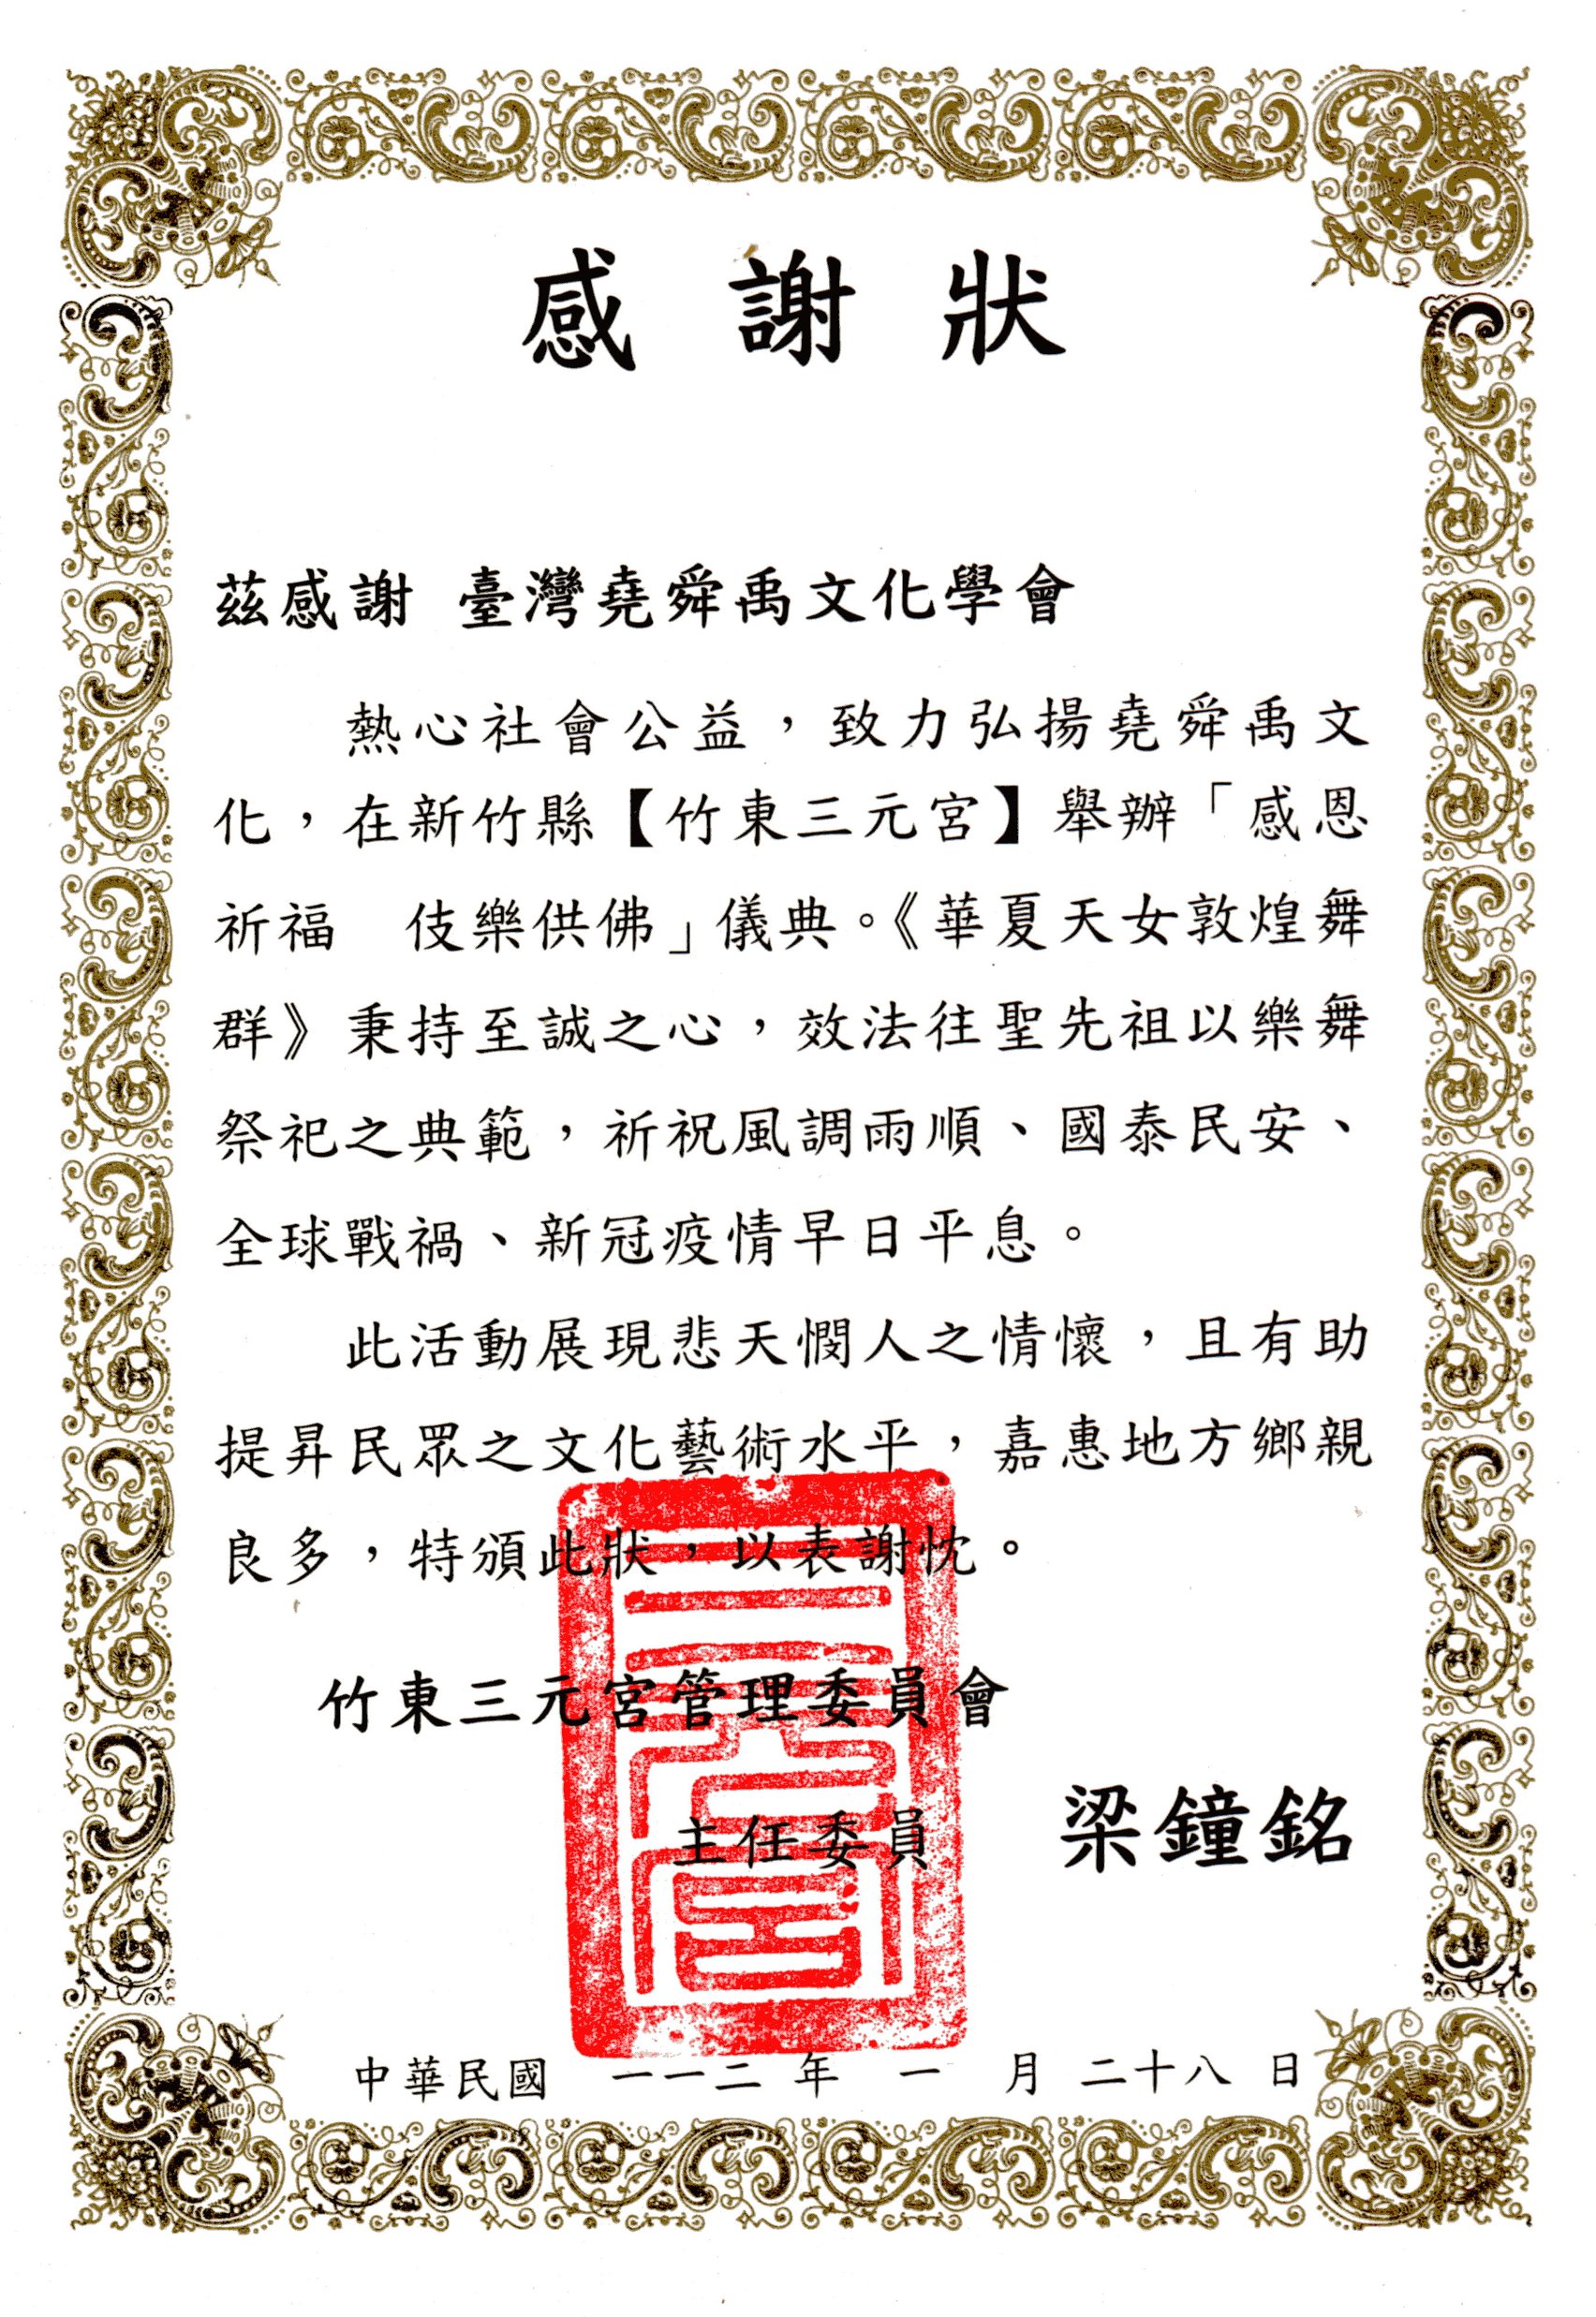 感謝狀
茲感謝 臺灣堯舜禹文化學會
熱心社會公益，致力弘揚堯舜禹文
化，在新竹縣【竹東三元宮】舉辦「感恩
祈福　伎樂供佛」儀典。《華夏天女敦煌舞
群》秉持至誠之心，效法往聖先祖以樂舞
祭祀之典範，祈祝風調雨順、國泰民安、
全球戰禍、新冠疫情早日平息。
此活動展現悲天憫人之情懷，且有助
提昇民眾之文化藝術水平，嘉惠地方鄉親
良多，特頒此狀，以表謝忱。
三元宮
竹東三元宮管理委員會
主任委員 梁鐘銘
中華民國 一一二 年 一 月 二十八 日